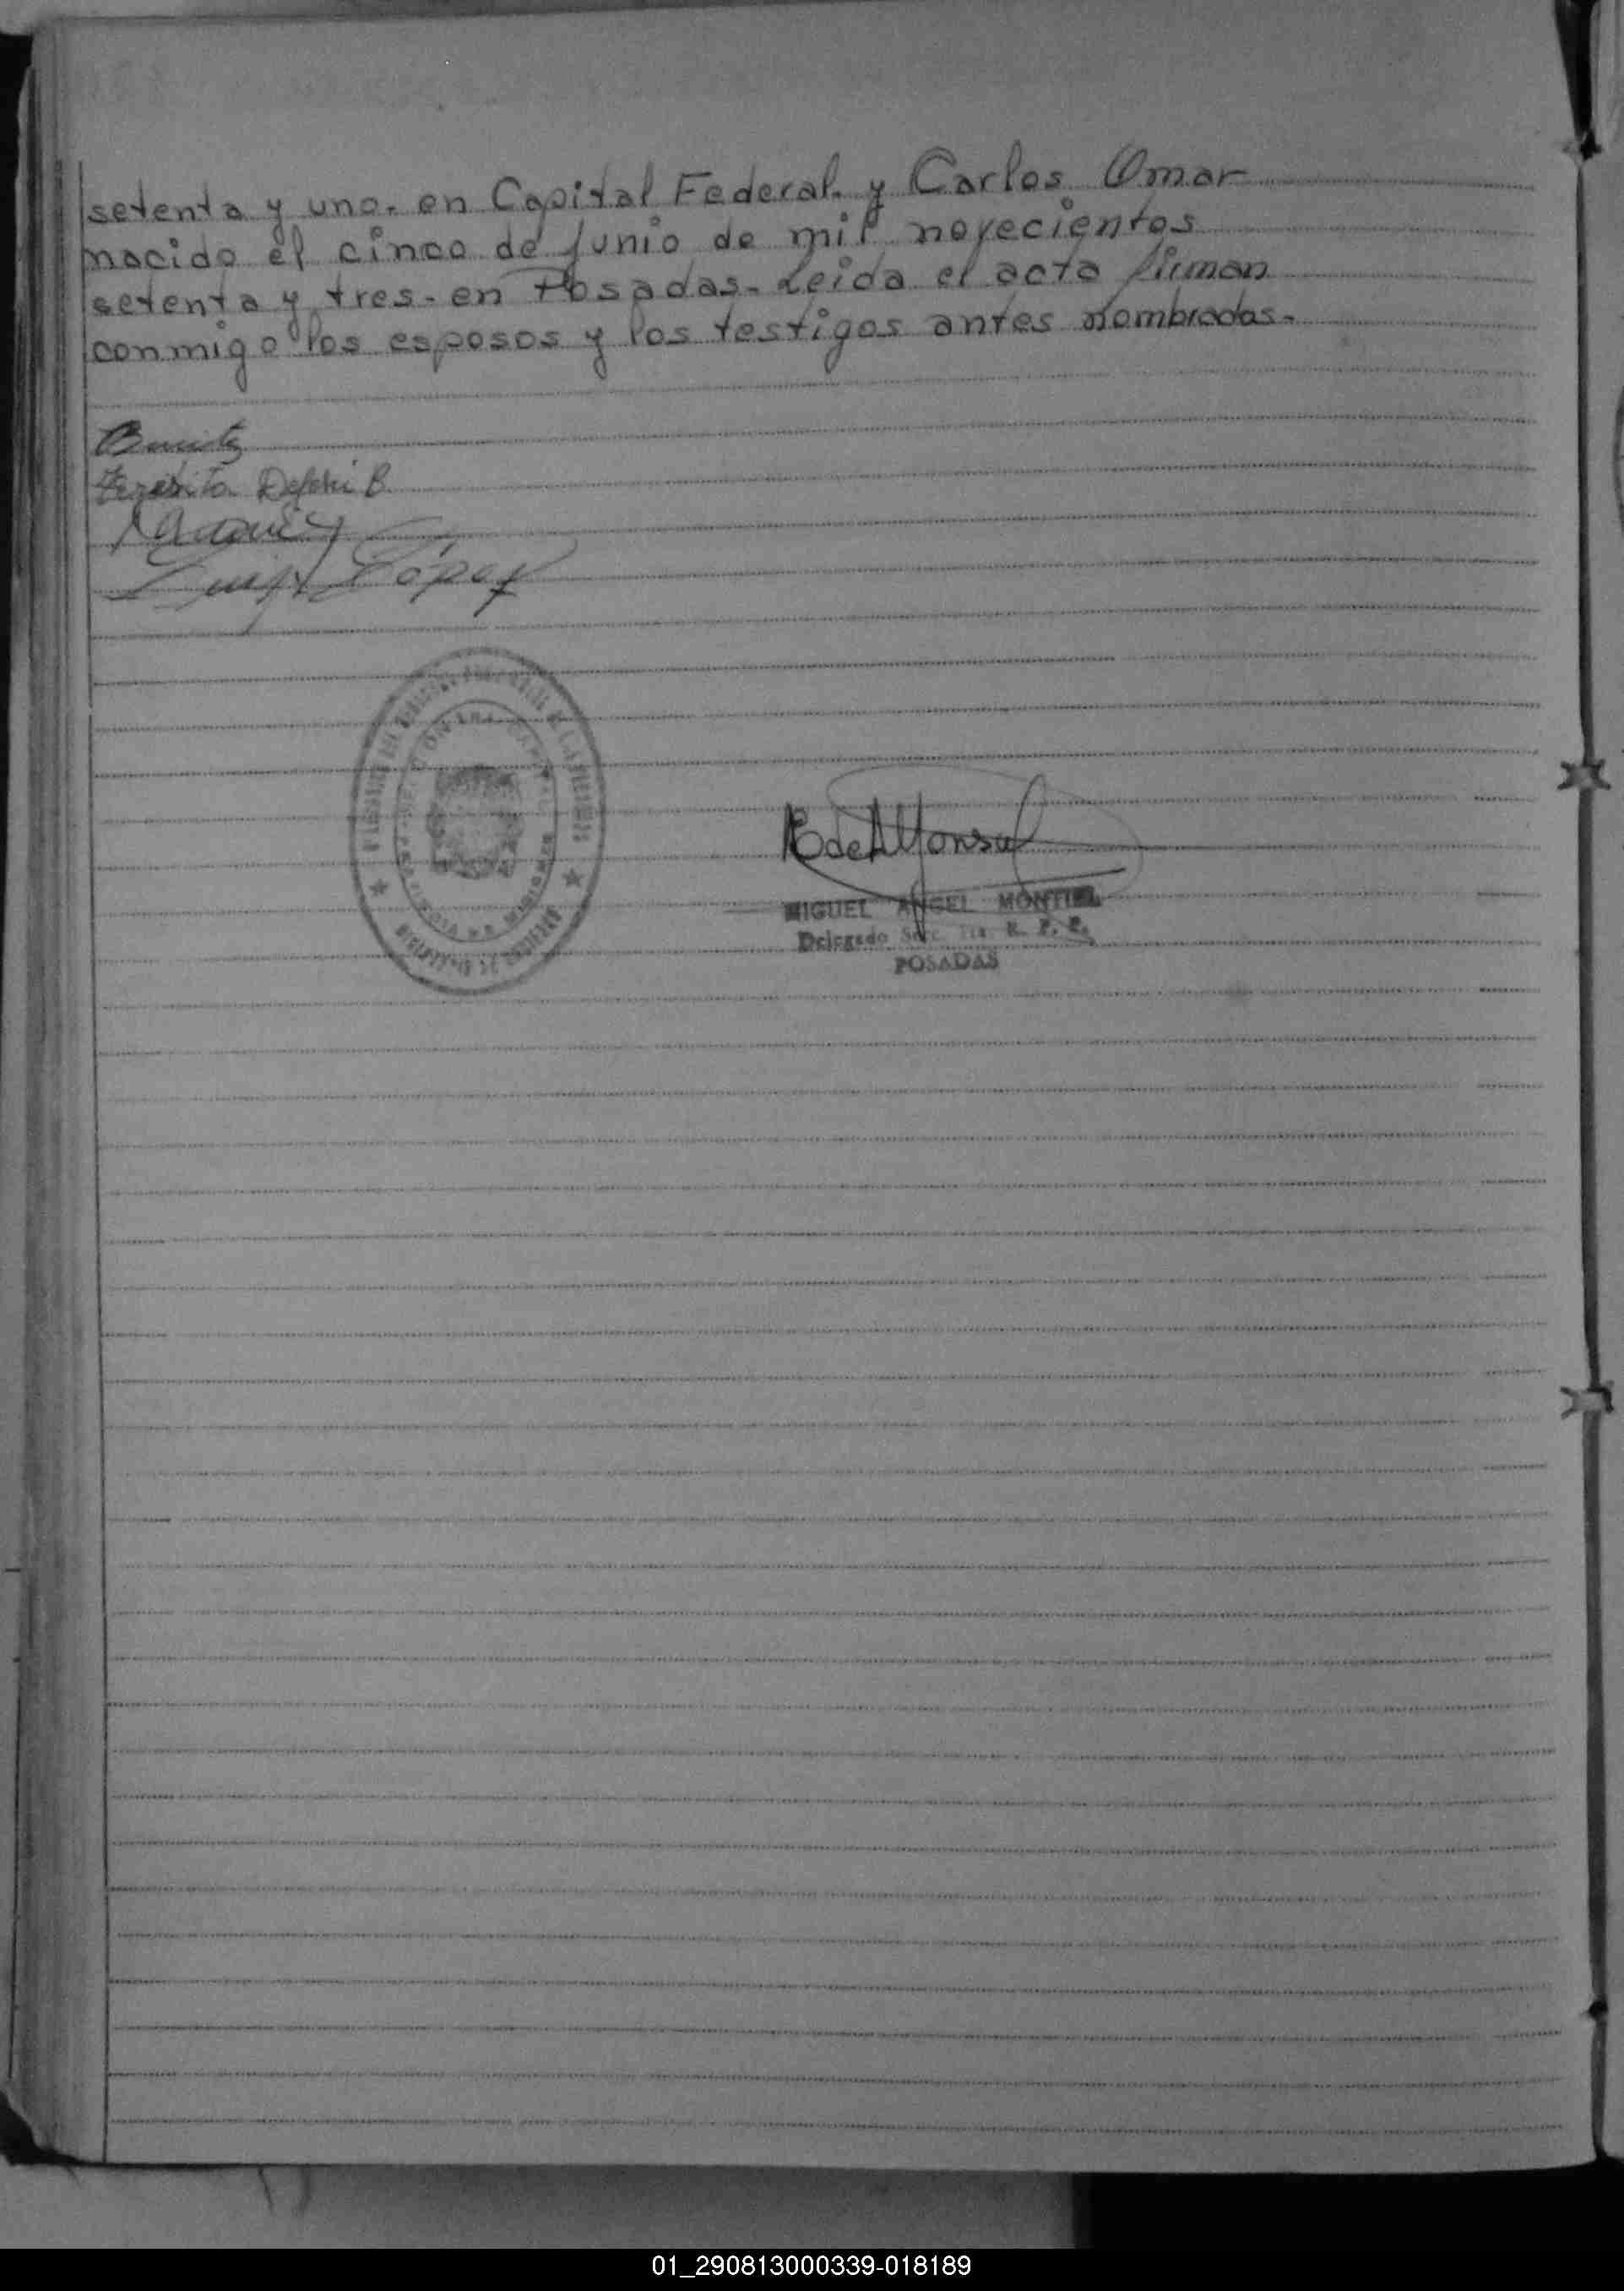 setenta y uno. en Capital Federal. y Carlos Omar
nacido el cinco de junio de mil novecientos
setenta y tres. en Posadas. Leida el acta firman
conmigo los esposos y los testigos antes nombrados.
Teresita B.
Luis López
CAPITAL
MISIONES
MIGUEL ANGEL MONTIEL
Delegado Secc. R. P. P.
POSADAS
01_290813000339-018189